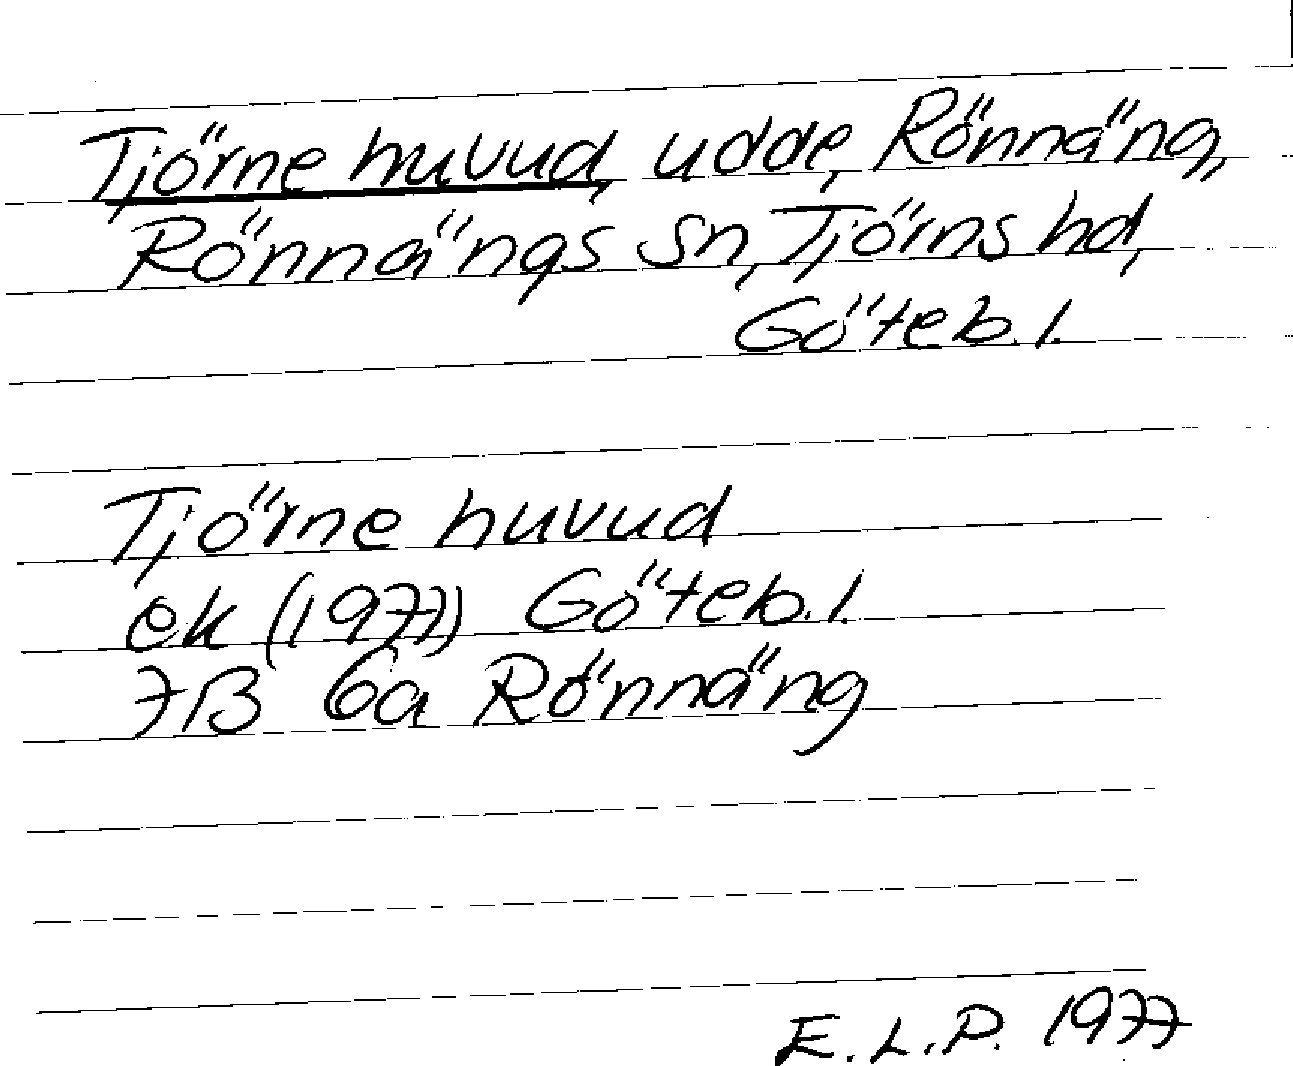 Tjörne huvud, udde, Rönnäng,
Rönnängs sn, Tjörns hd,
Göteb. l.
Tjörne huvud
ek (1977) Göteb. l.
7B 6a Rönnäng
E. L. P. 1977